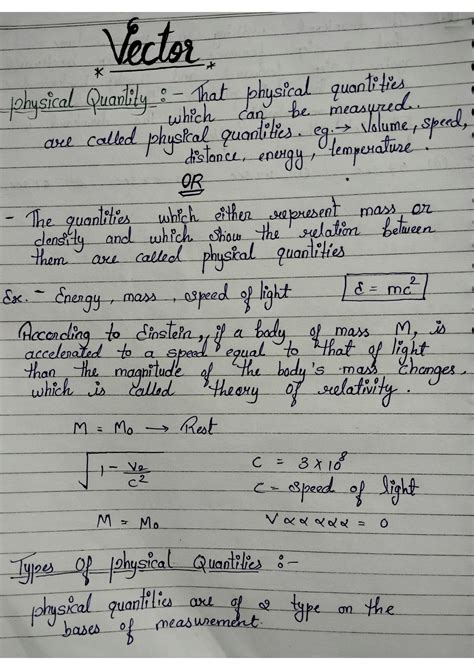 * Vector *
physical Quantity :- That physical quantities
which can be measured.
are called physical quantities. eg.→ Volume, speed,
distance, energy, temperature.
OR
- The quantities which either represent mass or
density and which show the relation between
them are called physical quantities
Ex. - Energy, mass, speed of light E = mc²
According to Einstein, if a body of mass M, is
accelerated to a speed equal to that of light
than the magnitude of the body's mass changes.
which is called theory of relativity.
M = Mo → Rest
√1 - V2/C² C = 3 × 10⁸
C = speed of light
M = Mo V α α α α α = 0
Types Of physical Quantities :-
physical quantities are of 2 type on the
bases of measurement.